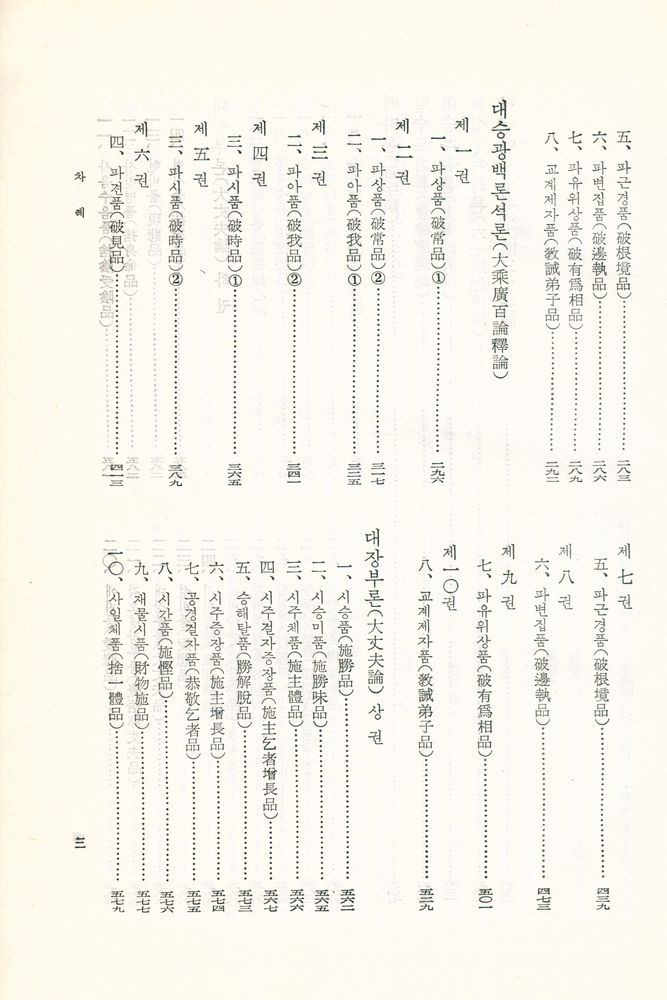 五、파근경품(破根境品)……二八三
六、파변집품(破邊執品)……二八六
七、파유위상품(破有爲相品)……二八九
八、교계제자품(教誡弟子品)……二九二
대승광백론석론(大乘廣百論釋論)
제一권
一、파상품(破常品)①……二九六
제二권
一、파상품(破常品)②……三一七
二、파아품(破我品)①……三二五
제三권
二、파아품(破我品)②……三四一
제四권
三、파시품(破時品)①……三六五
제五권
三、파시품(破時品)②……三八九
제六권
四、파견품(破見品)……四一三
제七권
五、파근경품(破根境品)……四三九
제八권
六、파변집품(破邊執品)……四七三
제九권
七、파유위상품(破有爲相品)……五〇一
제一〇권
八、교계제자품(教誡弟子品)……五二九
대장부론(大丈夫論) 상권
一、시승품(施勝品)……五六二
二、시승미품(施勝味品)……五六五
三、시주체품(施主體品)……五六六
四、시주걸자증장품(施主乞者增長品)……五六七
五、승해탈품(勝解脫品)……五七三
六、시주증장품(施主增長品)……五七四
七、공경걸자품(恭敬乞者品)……五七五
八、시간품(施慳品)……五七六
九、재물시품(財物施品)……五七七
一〇、사일체품(捨一體品)……五七九
차례
三